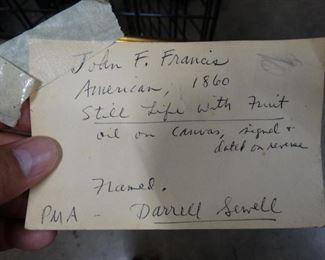 John F. Francis
American, 1860
Still Life with Fruit
oil on canvas, signed &
dated on reverse
Framed.
PMA - Darrell Sewell